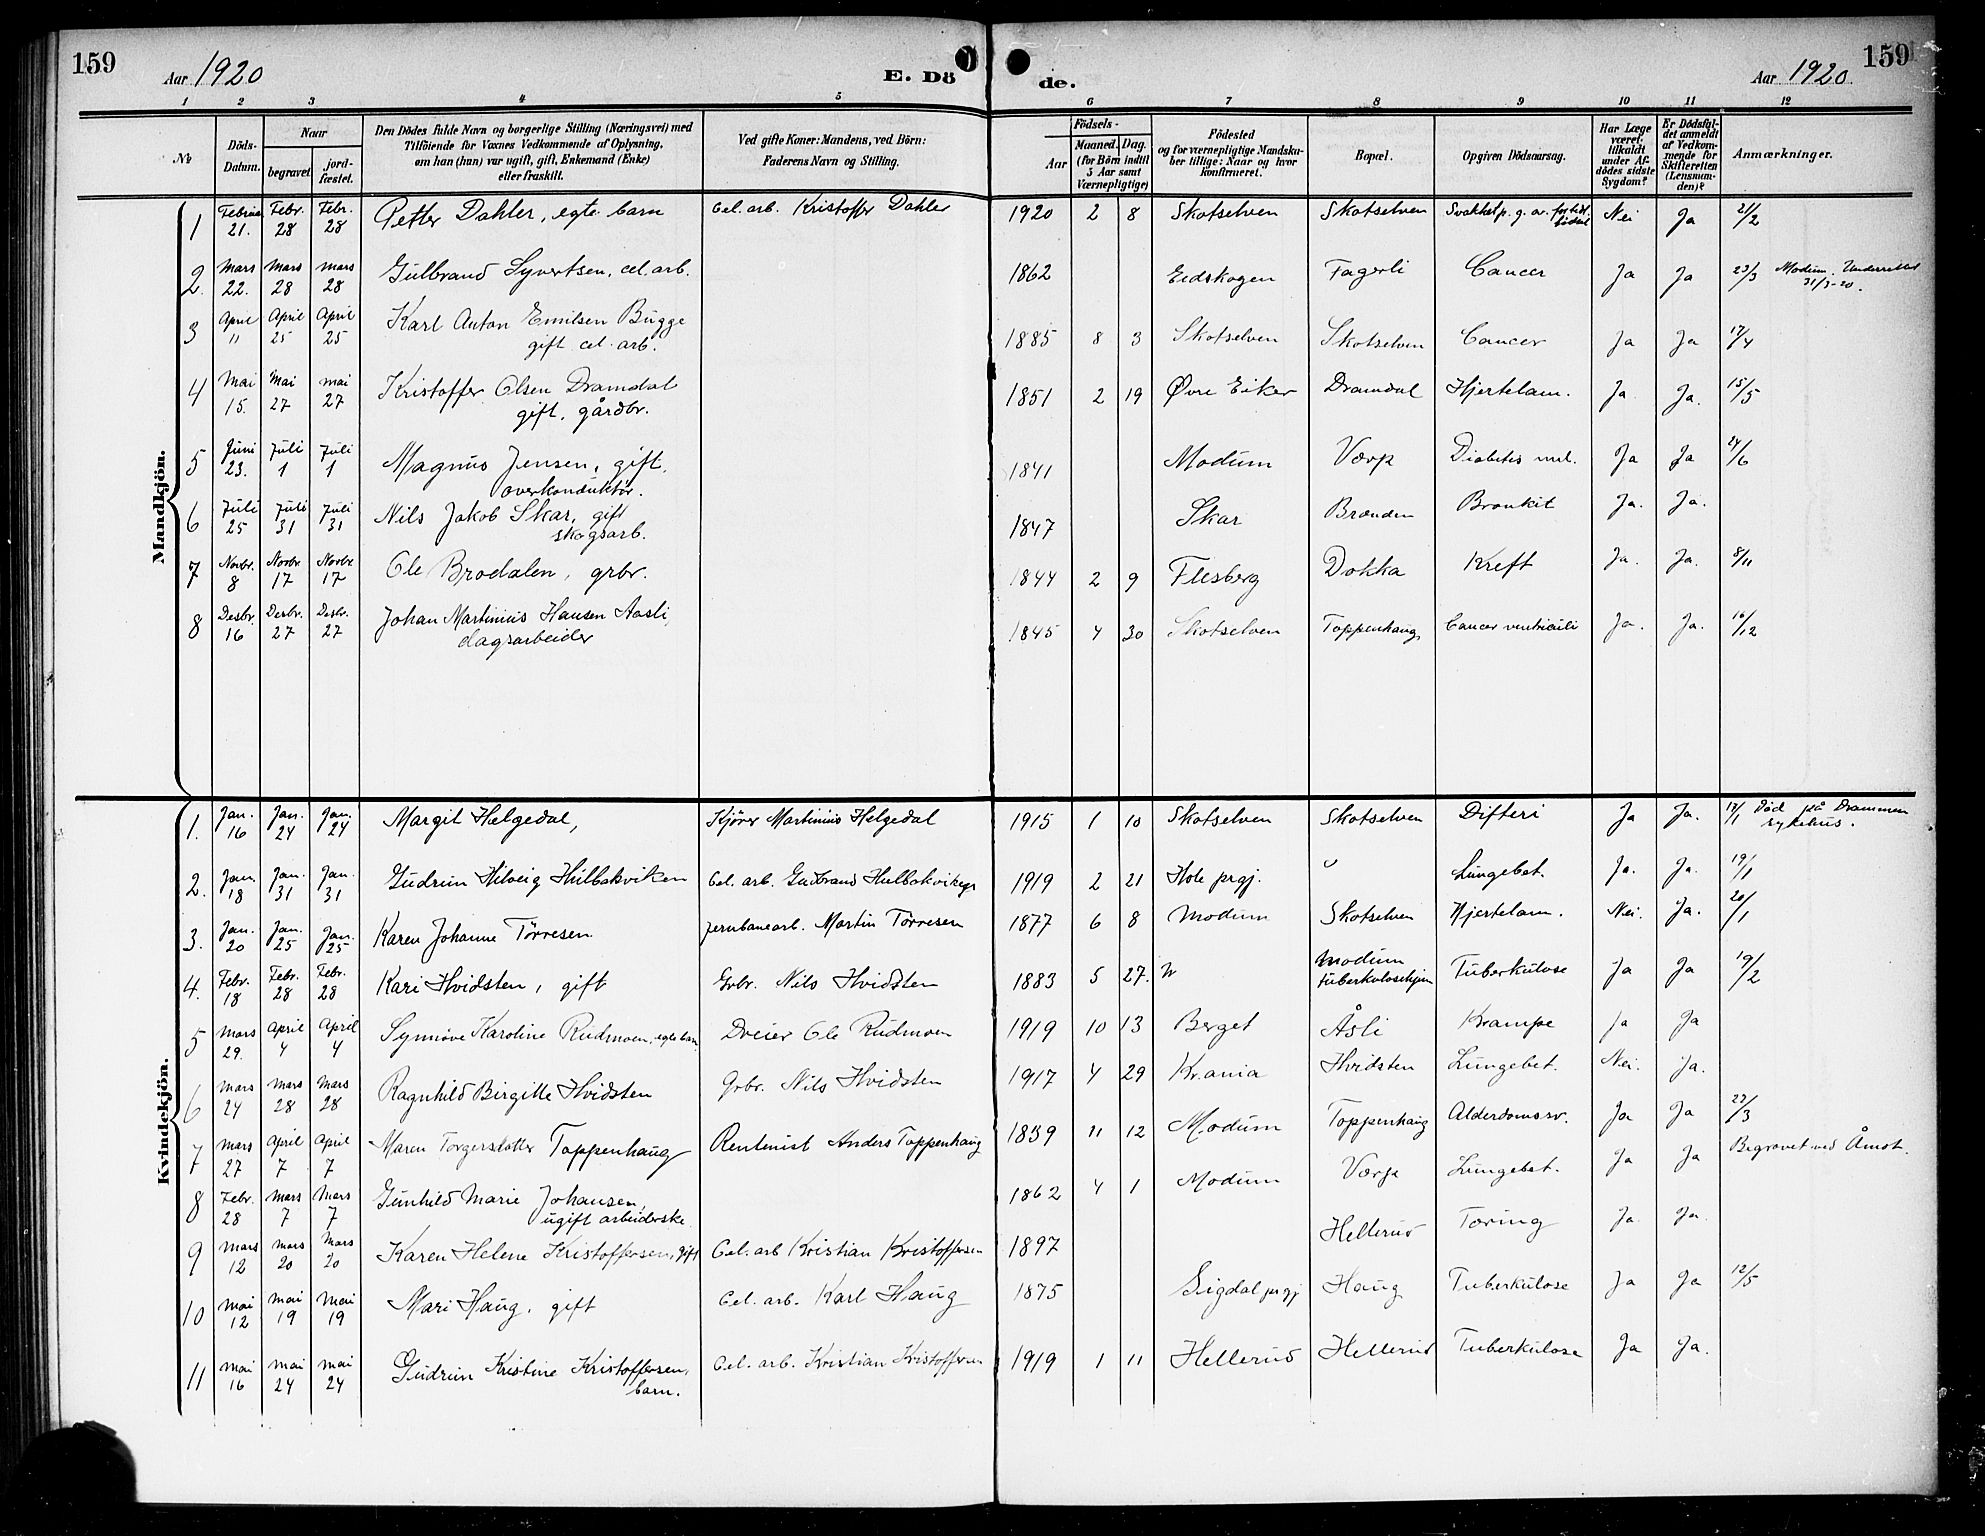 159
Aar 1920
E. Dö
de.
Aar 1920.
159
1 2 3 4 5 6 7 8 9 10 11 12
No
Döds-Datum.
Naar begravet jord-fæstet.
Den Dödes fulde Navn og borgerlige Stilling (Næringsvei) med
Tilföiende for Voxnes Vedkommende af Oplysning,
om han (hun) var ugift, gift, Enkemand (Enke)
eller fraskilt.
Ved gifte Koner: Mandens, ved Börn:
Faderens Navn og Stilling.
Födsels-
Aar
Maaned. (for Börn indtil 5 Aar samt Værnepligtige)
Dag.
Födested
og for værnepligtige Mandska-
ber tillige: Naar og hvor
konfirmeret.
Bopæl.
Opgiven Dödsaarsag.
Har Læge været tilkaldt under Af-dödes sidste Sygdom?
Er Dödsfal-det anmeldt af Vedkom-mende for Skifteretten (Lensman-den)?
Anmærkninger.
Mandkjön.
1 Februar 21. Febr. 28 Febr. 28 Petter Dahler, egte barn Cel. arb. Kristoffer Dahler 1920 2 8 Skotselven Skotselven Svakhet p. g. av. for tidl. Nei Ja 21/2
2. Mars 22. Mars 28 Mars 28 Gulbrand Syvertsen, cel. arb. 1862 Eidskogen Fagerli Cancer Ja Ja 23/3 Modum. Underrettet
31/3-20.
3 April 11 April 25 April 25 Karl Anton Emilsen Bugge
gift cel. arb. 1885 8 3 Skotselven Skotselven Cancer Ja Ja 17/4
4 Mai 15. Mai 27 Mai 27 Kristoffer Olsen Dramdal
gift, gårdbr. 1851 2 19 Øvre Eiker Dramdal Hjertelam. Ja Ja. 15/5
5 Juni 23. Juli 1 Juli 1 Magnus Jensen, gift.
overkonduktør. 1841 Modum Vorp Diabetes mel. Ja Ja 24/6
6 Juli 25 Juli 31 Juli 31 Nils Jakob Skar, gift
skogsarb. 1847 Skar Brænden Bronkit Ja. Ja.
7 Novbr. 8 Novbr. 17 Novbr. 17 Ole Brodalen, grbr. 1844 2 9 Flesberg Dokka Kreft Ja. Ja. 8/11
8 Desbr. 16 Desbr. 27 Desbr. 27 Johan Martinius Hansen Aasli,
dagsarbeider 1845 4 30 Skotselven Toppenhaug Cancer ventriculi Ja. Ja. 16/12
Kvindekjön.
1. Jan. 16 Jan. 24 Jan. 24 Margit Helgedal, Kjører Martinius Helgedal 1915 1 10 Skotselven Skotselven Difteri Ja Ja. 17/1 Død på Drammen
sykehus.
2. Jan. 18 Jan. 31 Jan. 31 Gudrun Hilveig Hulbakviken Cel. arb. Gudbrand Hulbakviken 1919 2 21 Hole prgj. " Lungebet. Ja. Ja. 19/1
3. Jan. 20 Jan. 25 Jan. 25 Karen Johanne Tørresen Jernbanearb. Martin Tørresen 1877 6 8 Modum Skotselven Hjertelam. Nei. Ja. 20/1
4. Febr. 18 Febr. 28 Febr. 28 Kari Hvidsten, gift Grbr. Nils Hvidsten 1883 5 27. " Modum
tuberkulosehjem Tuberkulose Ja Ja 19/2
5 Mars 29. April 4 April 4 Synnøve Karoline Rudmoen, egte barn Dreier Ole Rudmoen 1919 10 13 Berget Åsli Krampe Ja Ja
6 Mars 24 Mars 28 Mars 28 Ragnhild Birgitte Hvidsten Grbr. Nils Hvidsten 1917 4 29 Kr.ania Hvidsten Lungebet. Nei. Ja.
7 Mars 27 April 7 April 7 Maren Torgersdatter Toppenhaug Rentenist Anders Toppenhaug 1839 11 12 Modum Toppenhaug Alderdomssv. Ja Ja 27/3
8 Febr. 28 Mars 7 Mars 7 Gunhild Marie Johansen,
ugift arbeiderske 1862 4 1 Modum Vorp Lungebet. Ja Ja Begravet ved Åmot.
9 Mars 12 Mars 20 Mars 20 Karen Helene Kristoffersen, gift Cel. arb Kristian Kristoffersen 1897 Hellerud Tæring Ja. Ja.
10 Mai 12 Mai 19 Mai 19 Mari Haug, gift Cel. arb. Karl Haug 1875 Sigdal prgj Haug Tuberkulose Ja Ja 12/5
11 Mai 16 Mai 24 Mai 24 Gudrun Kristine Kristoffersen,
barn. Cel. arb. Kristian Kristoffersen 1919 1 11 Hellerud Hellerud Tuberkulose Ja Ja.